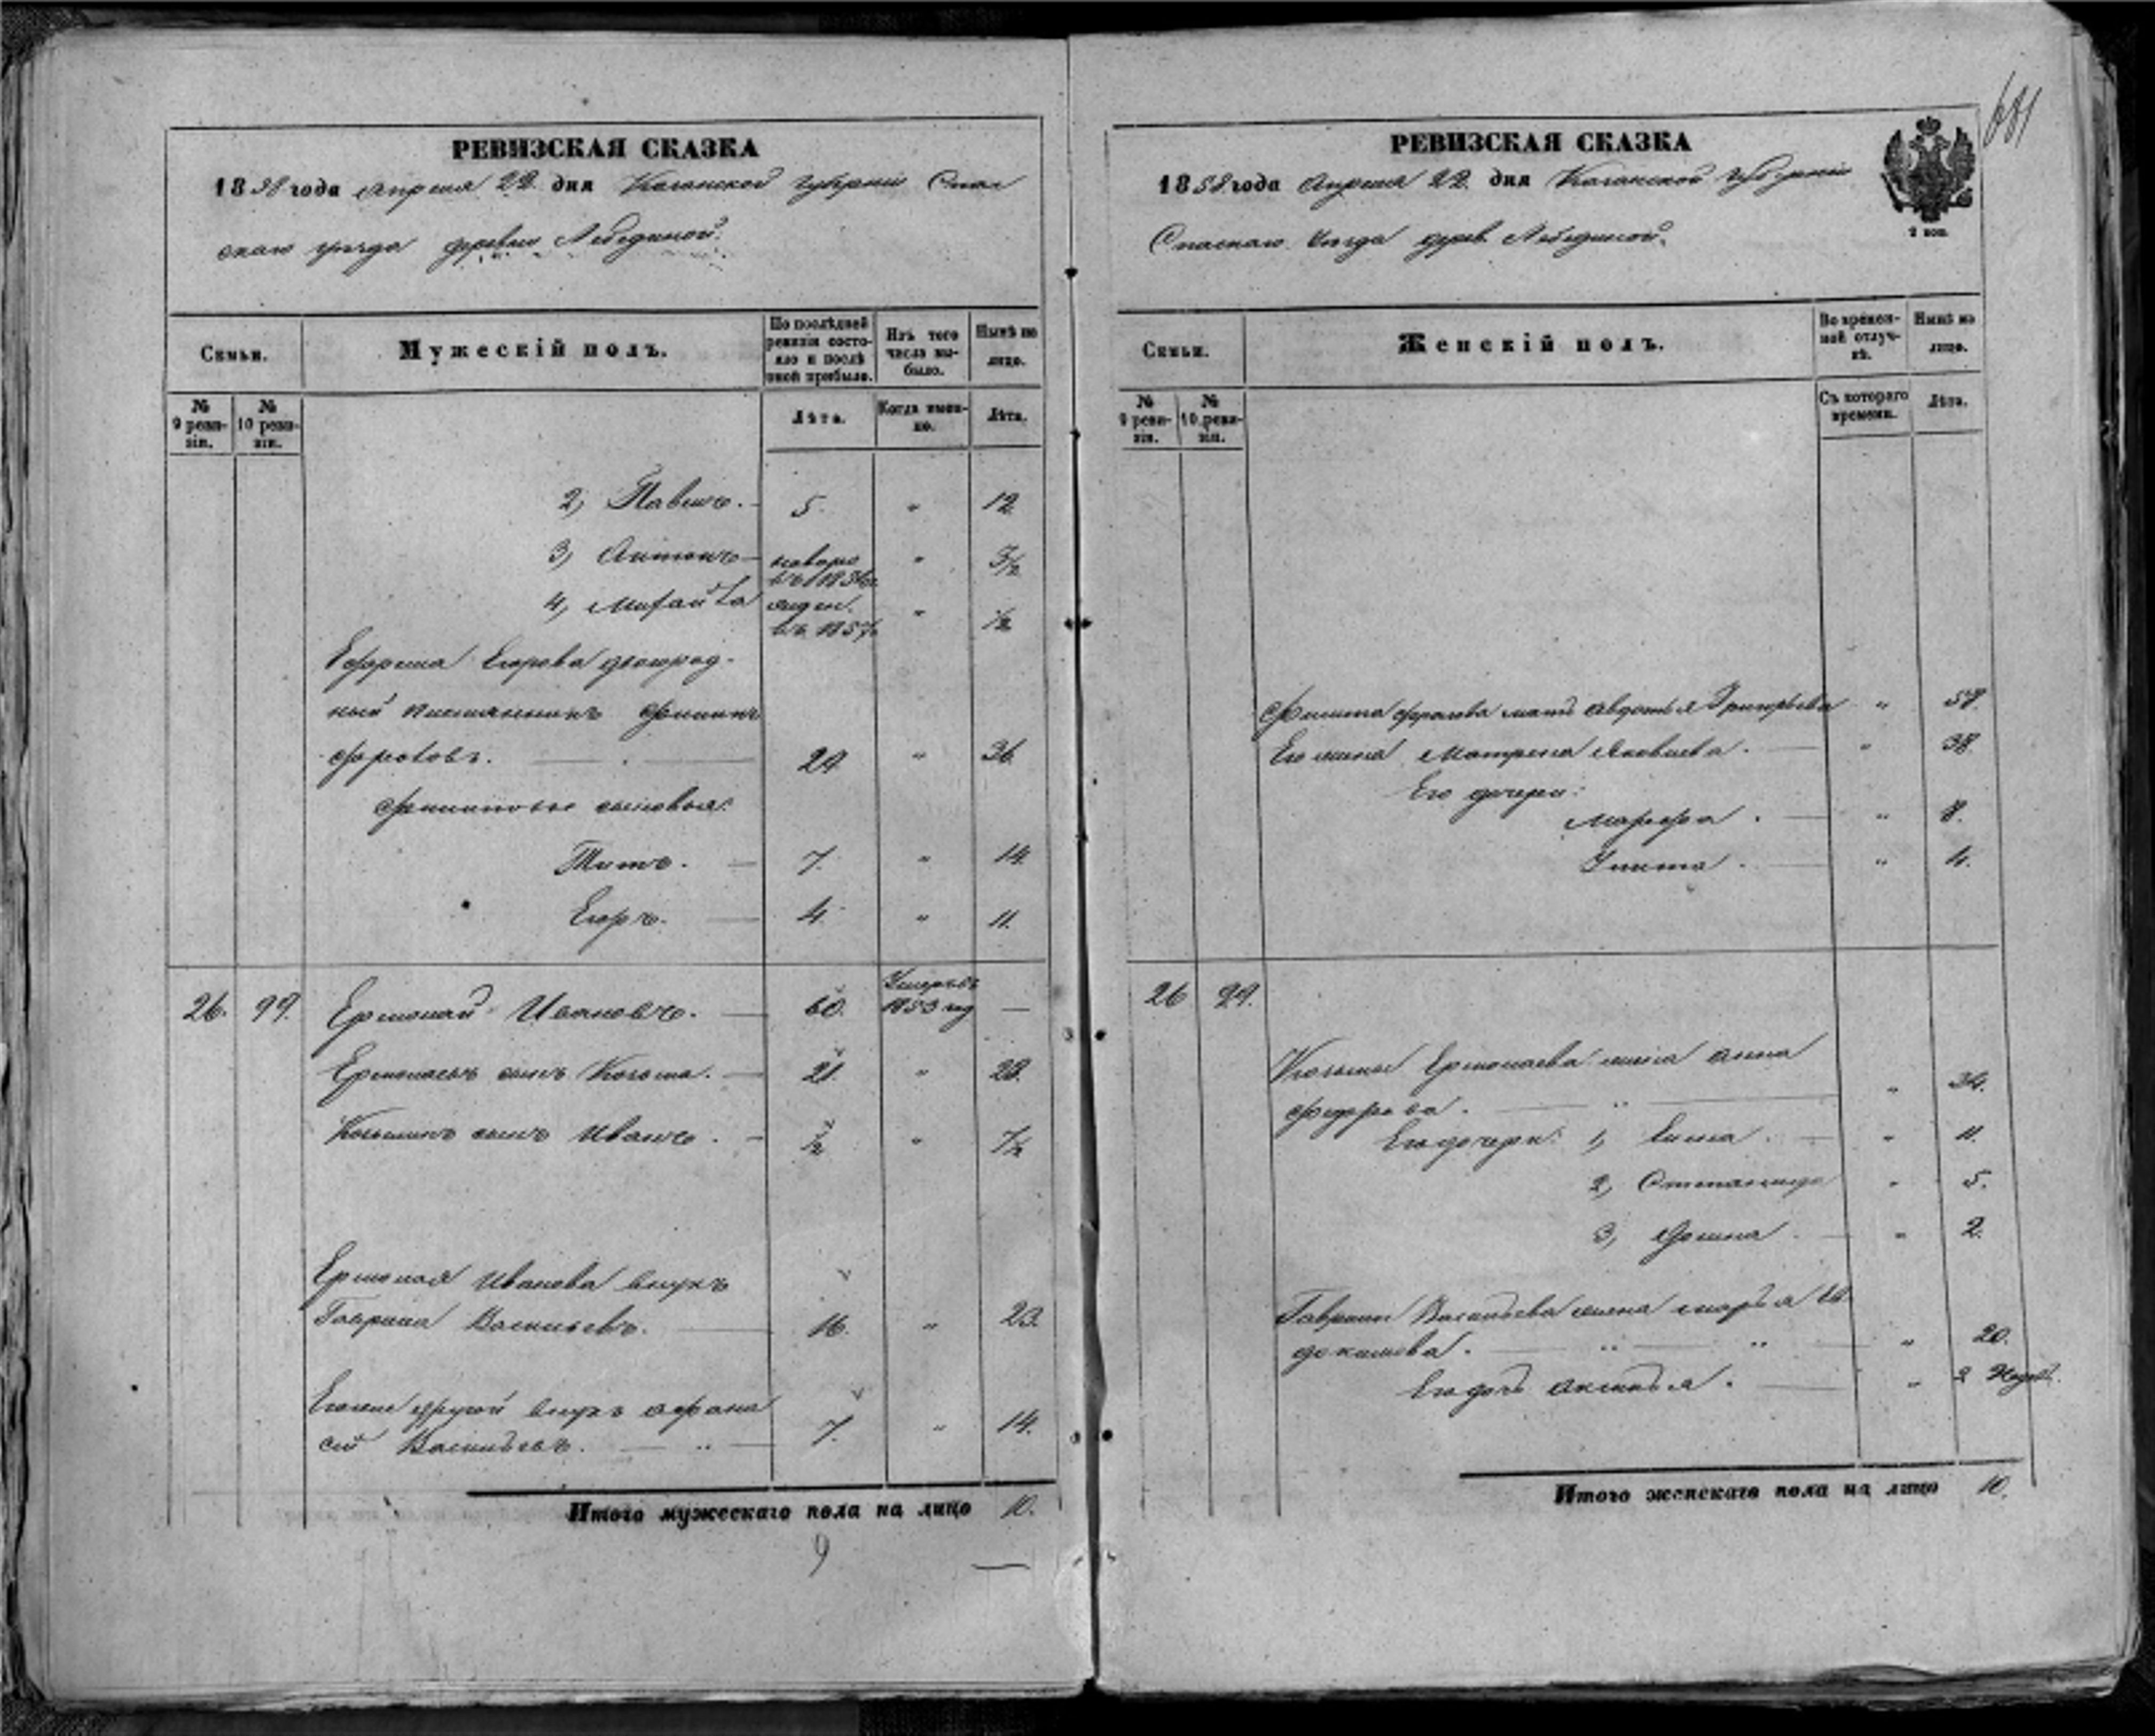 681
РЕВИЗСКАЯ СКАЗКА
1858 года Апреля 22 дня Казанской губерніи Спас
скаго уѣзда деревни Лебединой.
Семьи.
Мужескій полъ.
По послѣдней ревизіи состояло и послѣ оной прибыло.
Изъ того числа выбыло.
Нынѣ на лицо.
№ 9 ревизіи.
№ 10 ревизіи.
Лѣта.
Когда именно.
Лѣта.
2, Павелъ. 5. „ 12
3, Антонъ „
4, Михайла въ 1857 „ ½
Ефрема Егорова двоюрод-
ный племянникъ Филипъ
Фроловъ. 29 „ 36
Филиповы сыновья:
Титъ. 7. „ 14
Егоръ. 4. „ 11.
26. 29. Ермолай Ивановъ. 60. Умеръ въ 1853 год —
Ермолаевъ сынъ Козьма. 21. „ 28.
Козьминъ сынъ Иванъ. ½ „ 7½
Ермолая Иванова внукъ
Гаврила Васильевъ. 16. „ 23.
другой внукъ Афана
сій Васильевъ. 7. „ 14.
Итого мужескаго пола на лицо 10.
9
РЕВИЗСКАЯ СКАЗКА
1858 года Апреля 22 дня Казанской губерніи
Спаскаго уѣзда дерев. Лебединой.
2 коп.
Семьи.
Женскій полъ.
Во временной отлучкѣ.
Нынѣ на лицо.
№ 9 ревизіи.
№ 10 ревизіи.
Съ котораго времени.
Лѣта.
Филипа Фролова мать Авдотья Григорьева „ 58.
Его жена Матрена Яковлева. „ 38
Его дочери:
Марфа. „ 8.
Улита. „ 4.
26 29.
Козьмы Ермолаева жена Анна
Федорова. „ 34.
Его дочери: 1, „ 11.
2, Степанида „ 5.
3, „ 2.
Гаврилы Васильева жена Марья Ев
докимова. „ 20.
Его дочь Аксинья. „ 2 Недел.
Итого женскаго пола на лицо 10.